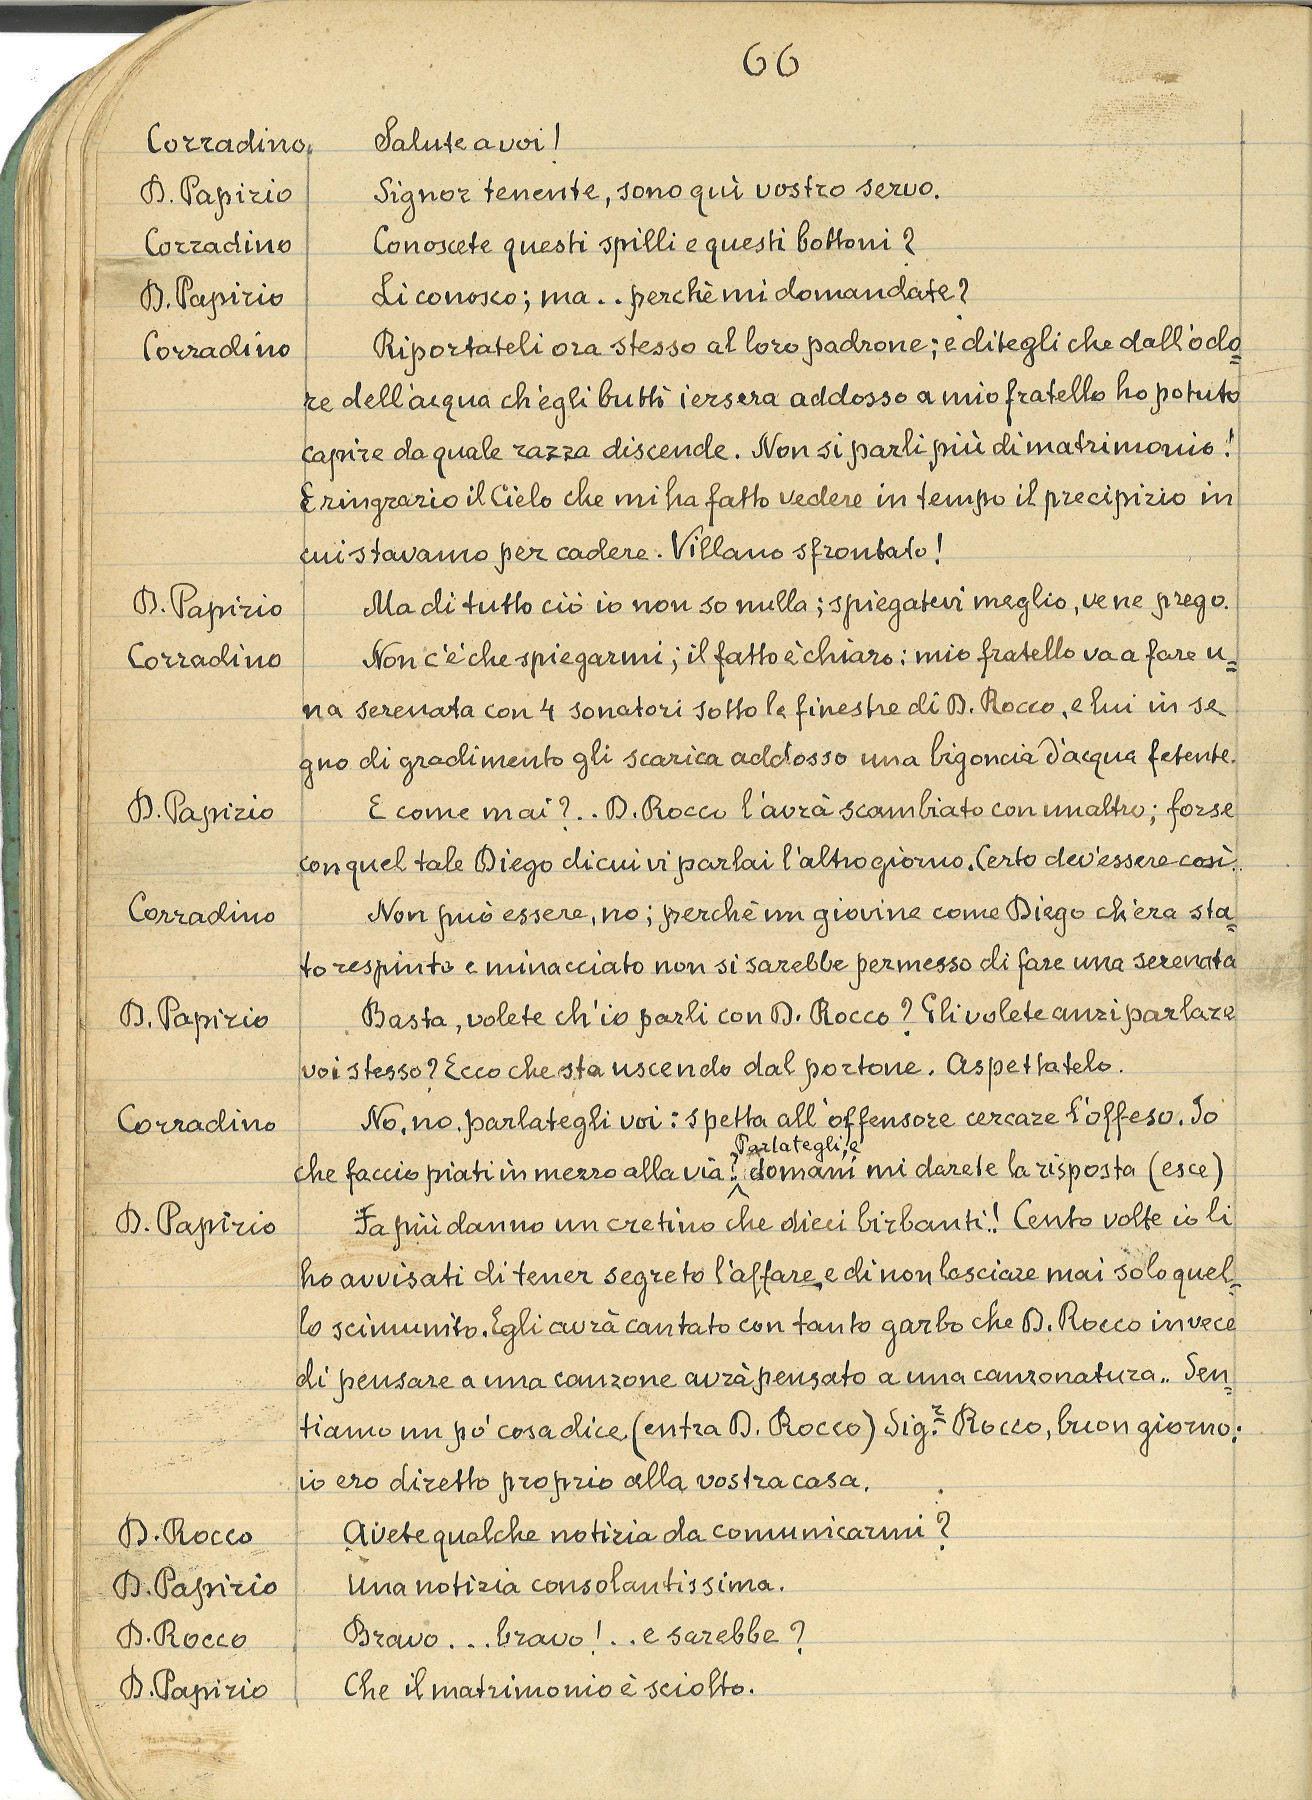 66
Corradino. Salute a voi!
D. Papirio Signor tenente, sono quì vostro servo.
Corradino Conoscete questi spilli e questi bottoni?
D. Papirio Li conosco; ma.. perchè mi domandate?
Corradino Riportateli ora stesso al loro padrone; e ditegli che dall'odo=
re dell'acqua ch'egli buttò iersera addosso a mio fratello ho potuto
capire da quale razza discende. Non si parli più di matrimonio!
E ringrazio il Cielo che mi ha fatto vedere in tempo il precipizio in
cui stavamo per cadere. Villano sfrontato!
D. Papirio Ma di tutto ciò io non so nulla; spiegatevi meglio, ve ne prego.
Corradino Non c'è che spiegarmi; il fatto è chiaro: mio fratello va a fare u=
na serenata con 4 sonatori sotto le finestre di D. Rocco, e lui in se
gno di gradimento gli scarica addosso una bigoncia d'acqua fetente.
D. Papirio E come mai?.. D. Rocco l'avrà scambiato con un altro; forse
con quel tale Diego di cui vi parlai l'altro giorno. Certo dev'essere così..
Corradino Non può essere, no; perchè un giovine come Diego ch'era sta=
to respinto e minacciato non si sarebbe permesso di fare una serenata
D. Papirio Basta, volete ch'io parli con D. Rocco? Gli volete anzi parlare
voi stesso? Ecco che sta uscendo dal portone. Aspettatelo.
Corradino No, no, parlategli voi: spetta all'offensore cercare l'offeso. Io
Parlategli, e
che faccio piati in mezzo alla via? domani mi darete la risposta (esce)
D. Papirio Fa più danno un cretino che dieci birbanti! Cento volte io li
ho avvisati di tener segreto l'affare, e di non lasciare mai solo quel=
lo scimunito. Egli avrà cantato con tanto garbo che D. Rocco invece
di pensare a una canzone avrà pensato a una canzonatura.. Sen=
tiamo un pò cosa dice (entra D. Rocco) Sig.r Rocco, buon giorno;
io ero diretto proprio alla vostra casa.
D. Rocco Avete qualche notizia da comunicarmi?
D. Papirio Una notizia consolantissima.
D. Rocco Bravo... bravo!.. e sarebbe?
D. Papirio Che il matrimonio è sciolto.